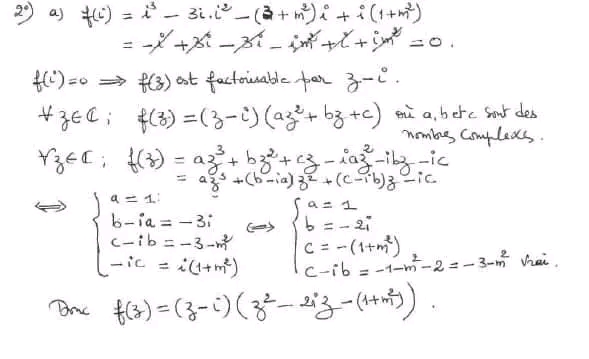 2°) a) f(i) = i³ − 3i.i² − (3 + m²) i + i (1+m²)
= −i + 3i − 3i − im² + i + im² = 0.
f(i)=0 ⟹ f(z) est factorisable par z−i.
∀ z ∈ ℂ ; f(z) = (z−i) (az² + bz + c) où a, b et c sont des
nombres complexes.
∀z ∈ ℂ ; f(z) = az³ + bz² + cz − iaz² − ibz − ic
= az³ + (b−ia) z² + (c−ib)z − ic
⟺ { a = 1 : ⟺ { a = 1
b − ia = −3i b = −2i
c − ib = −3 − m² c = −(1+m²)
−ic = i(1+m²) c − ib = −1 − m² − 2 = −3 − m² vrai.
Donc f(z) = (z−i) (z² − 2iz − (1+m²)).